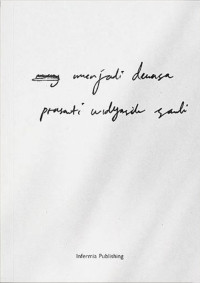 menjadi dewasa
prasati widyasih sauli
Infermia Publishing